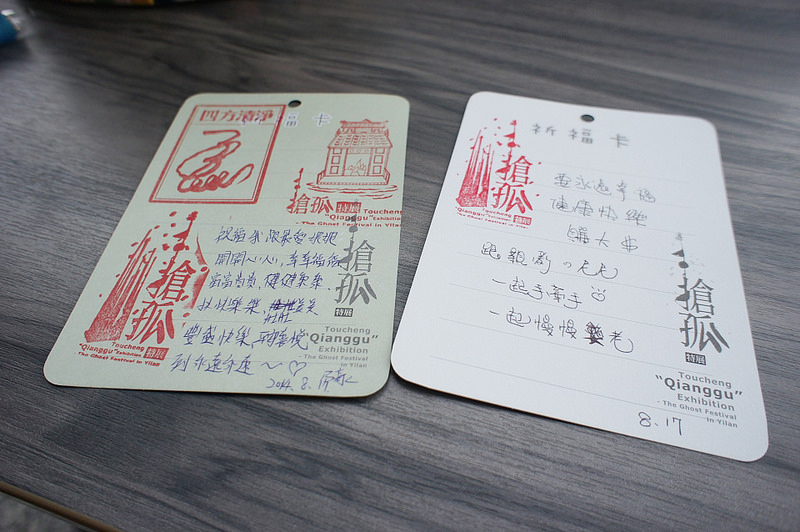 四方清淨
福卡
搶孤 特展
Toucheng
"Qianggu" Exhibition
- The Ghost Festival in Yilan
祝福我跟最愛
開開心心,幸幸福福
富富貴貴,健健康康
快快樂樂,
豐盛快樂
到永遠永遠~♡
2014.8.
搶孤
特展
"Qianggu" Exhibition 特展
- The Ghost Festival in Yilan
搶孤
特展
Toucheng
"Qianggu"
Exhibition
- The Ghost Festival
in Yilan
祈福卡
搶孤
Toucheng
"Qianggu" Exhibition 特展
- The Ghost Festival in Yilan
要永遠幸福
健康快樂
賺大車
跟親愛の毛毛
一起手牽手
一起慢慢老
搶孤
特展
Toucheng
"Qianggu"
Exhibition
- The Ghost Festival
in Yilan
8.17